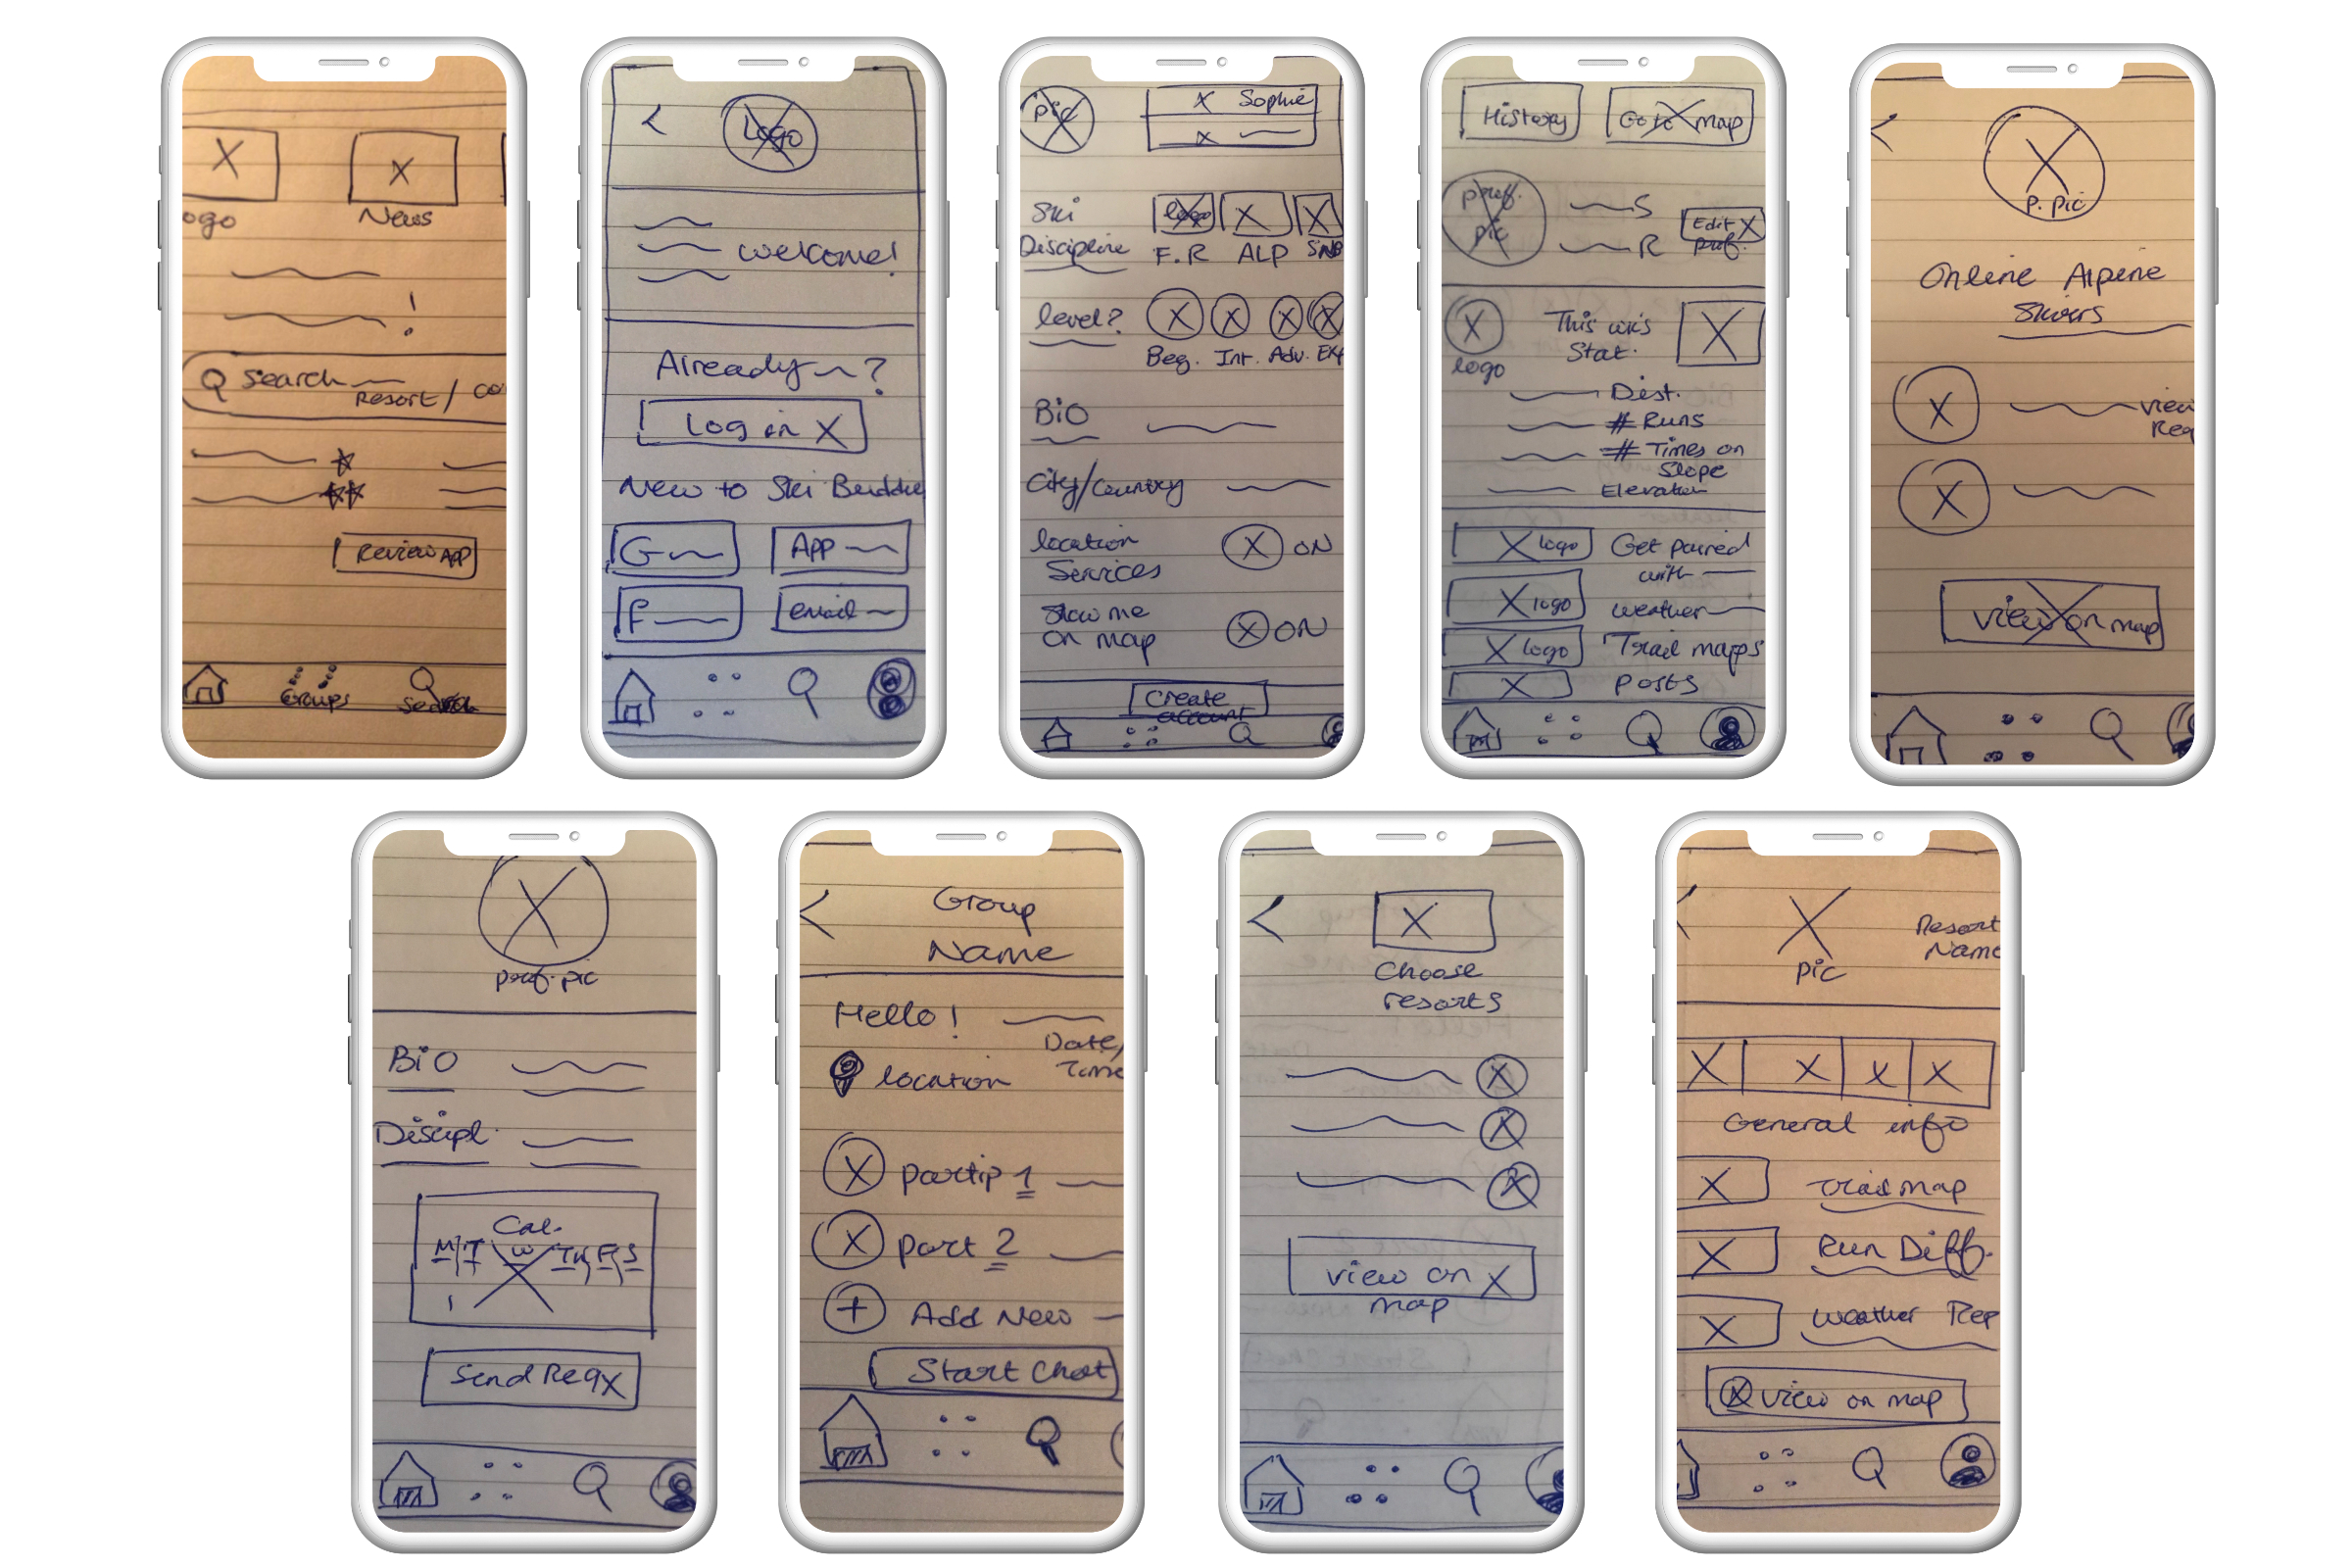 ogo
News
!
Search
Resort / co
Review APP
Groups
Search
Logo
welcome!
Already ?
Log in X
New to Ski Buddie
G
App
F
email
pic
X Sophie
X
Ski
Discipline
logo
F.R
ALP
SNB
level?
Beg.
Int.
Adv.
Exp
BiO
City/country
location
Services
ON
Show me
on map
ON
Create
account
History
Go to map
prof.
pic
S
R
Edit X
prof.
logo
This wk's
Stat.
Dist.
# Runs
# Times on
Slope
Elevation
X logo
Get paired
with
X logo
weather
X logo
Trail maps
X
posts
p. pic
Online Alpine
Skiers
view
Req
view on map
prof. pic
BiO
Discipl.
Cal.
M T W Th F S
1
Send Req X
Group
Name
Hello!
Date/
Time
location
partip 1
part 2
+ Add New
Start Chat
X
Choose
resorts
view on X
map
Resort
Name
pic
General info
Trail map
Run Diff.
weather Rep
view on map